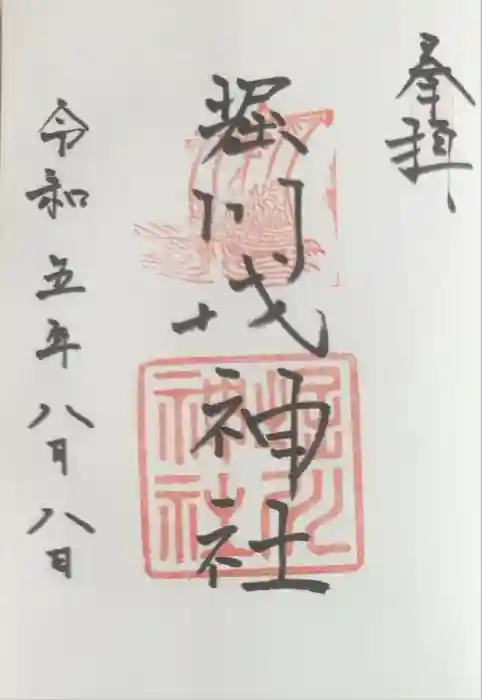 奉拝
堀川戎神社
堀川
神社
令和五年八月八日